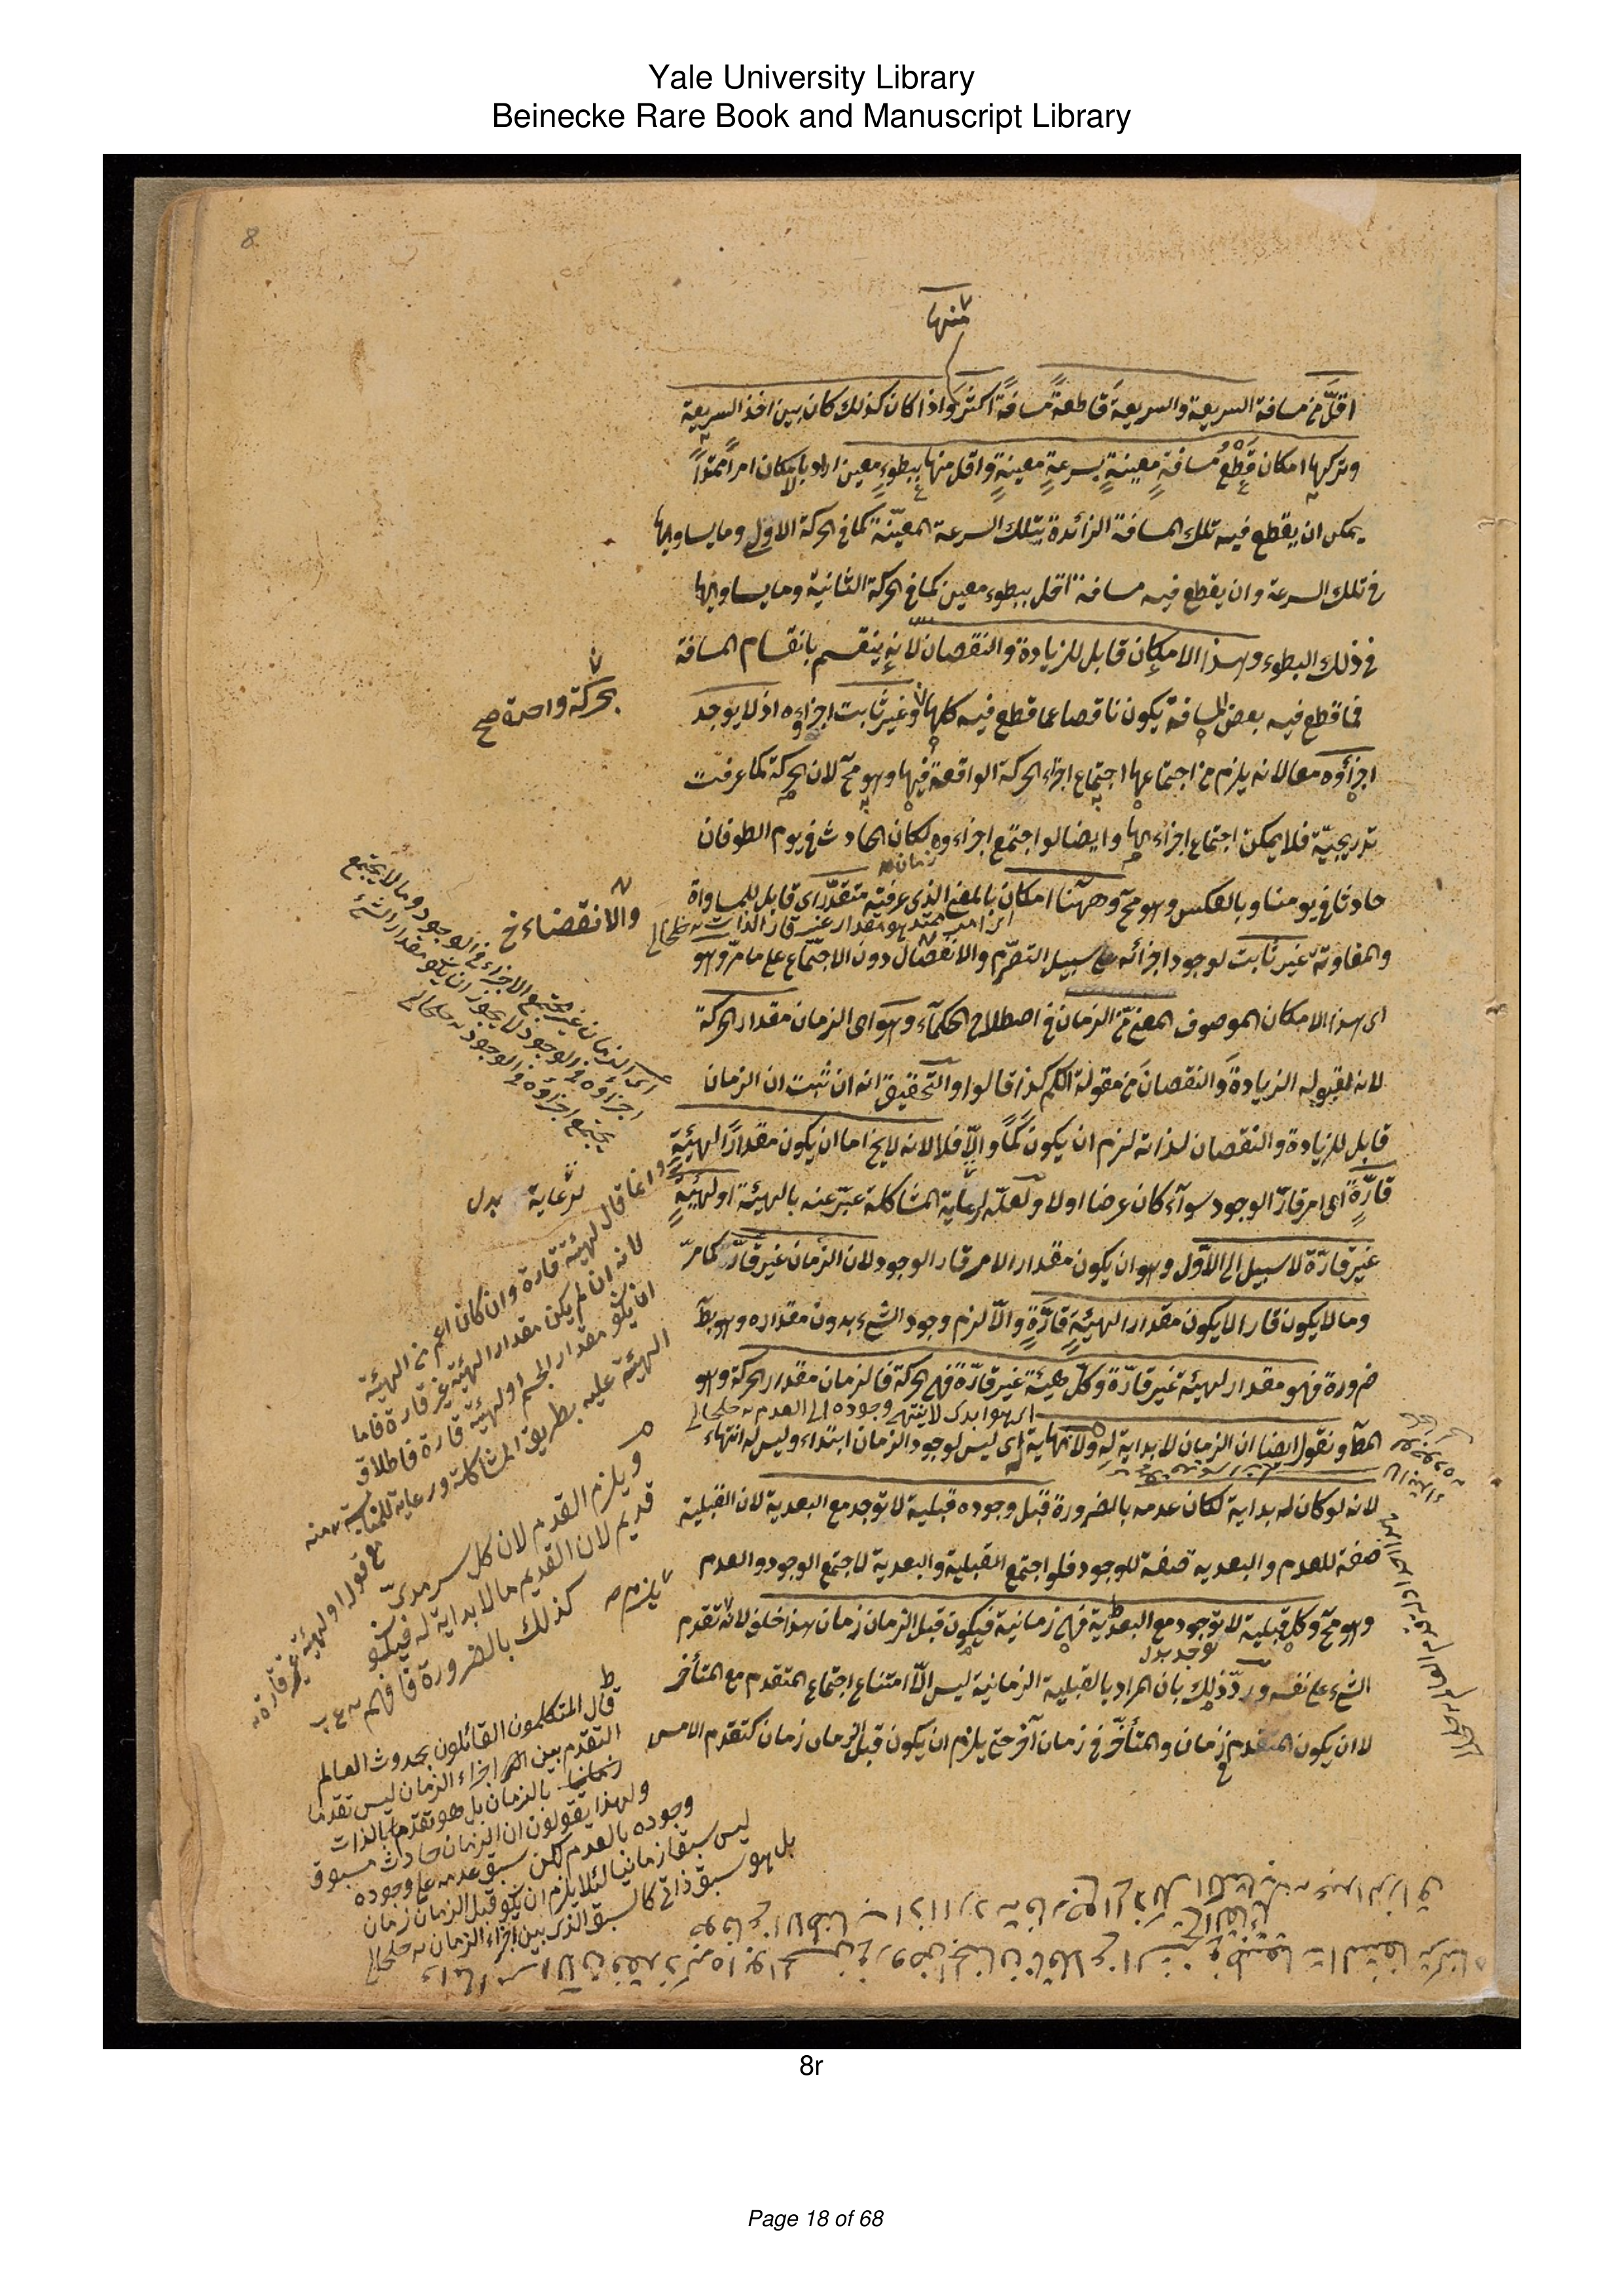 Yale University Library
Beinecke Rare Book and Manuscript Library
8
منها
اقلّ من مسافة السريعة والسريعة قاطعةً مسافةً اكثر واذا كان كذلك كان بين اخذ السريعة
وتركها امكان قطع مسافةٍ معينةٍ بسرعةٍ معينةٍ واقل منها ببطوءٍ معين اراد بالامكان امراً ممتداً
يمكن ان يقطع فيه تلك المسافة الزائدة بتلك السرعة المعيّنة كما في الحركة الاولى وما يساويها
في تلك السرعة وان يقطع فيه مسافة اقل ببطوء معين كما في الحركة الثانية وما يساويها
في ذلك البطوء وهذا الامكان قابل للزيادة والنقصان لانه ينقسم بانقسام المسافة
فما قطع فيه بعض المسافة يكون ناقصا عما قطع فيه كلها وغير ثابت اجزاءه اذ لا يوجد
بحركة واحدة صح
اجزاؤه معا لانه يلزم من اجتماعها اجتماع اجزاء الحركة الواقعة فيها وهو مح لان الحركة كما عرفت
تدريجيّة فلا يمكن اجتماع اجزاءها وايضا لو اجتمع اجزاءوه لكان الحادث في يوم الطوفان
زمان
حادثا في يومنا وبالعكس وهو مح وههنا امكان بالمعنى الذي عرفته متقدّر اى قابل للمساواة
والانقضاء خ
اى امر ممتد هو مقدار غير قار الذات خلخالى
والمفاوتة غير ثابت لوجود اجزائه على سبيل التصرّم والانفصال دون الاجتماع على ما مرّ وهو
اى هذا الامكان الموصوف المعنىّ من الزمان في اصطلاح الحكماء وهو اى الزمان مقدار الحركة
لانه لقبوله الزيادة والنقصان من مقولة الكم كذا قالوا والتحقيق انه ان ثبت ان الزمان
قابل للزيادة والنقصان لذاته لزم ان يكون كمّاً والّا فلا لانه لا يخ اما ان يكون مقداراً لهيئةٍ
قارّةٍ اى امر قارّ الوجود سواء كان عرضا اولا ولعلّه لرعاية المشاكلة عبّر عنه بالهيئة او لهيئةٍ
لرعاية بدل
غير قارّة لا سبيل الى الاوّل وهو ان يكون مقدار الامر قار الوجود لان الزمان غير قارّ كما مرّ
وما لا يكون قارا لا يكون مقدار الهيئةٍ قارّةٍ والّا لزم وجود الشيء بدون مقداره وهو بط
ضرورة فهو مقدار لهيئة غير قارّة وكلّ هيئة غير قارّة فهي الحركة فالزمان مقدار الحركة وهو
اى هو ابدى لا ينتهى وجوده الى العدم خلخالى
المط ونقول ايضا ان الزمان لا بداية له ولا نهاية له اى ليس لوجود الزمان ابتداء وليس له انتهاء
لانه لو كان له بداية لكان عدمه بالضرورة قبل وجوده قبلية لا توجد مع البعدية لان القبلية
صفة للعدم والبعدية صفة للوجود فلو اجتمع القبلية والبعدية لاجتمع الوجود والعدم
يلزم
وهو مح وكل قبلية لا توجد مع البعدية فهي زمانية فيكون قبل الزمان زمان هذا خلف لانه تقدم
توجد بدل
الشيء على نفسه وردّ ذلك بان المراد بالقبلية الزمانية ليس الّا امتناع اجتماع المتقدم مع المتأخر
لا ان يكون المتقدم في زمان والمتأخر في زمان آخر حتى يلزم ان يكون قبل الزمان زمان كتقدم الامس
اى الزمان غير مجتمع الاجزاء في الوجود وما لا يجتمع
اجزاؤه في الوجود لا يجوز ان يكو مقدار الشئ
يجتمع اجزاؤه في الوجود خلخالى
وانما قال لهيئة قارة وان كان اعم من الهيئة
لانه ان لم يكن مقدار الهيئة غير قارة فاما
ان يكو مقدار الجسم او لهيئة قارة فاطلاق
الهيئة عليه بطريق المشاكلة ورعاية للمناسبة منه
مع قوله او لهيئة غير قارة
ويلزم القدم لان كل سرمدىّ
قديم لان القديم ما لا بداية له فيكو
كذلك بالضرورة فافهم
قال المتكلمون القائلون بحدوث العالم
التقدم بين اجزاء الزمان ليس تقدما
بالزمان بل هو تقدم بالذات
ولهذا يقولون ان الزمان حادث مسبوق
وجوده بالعدم لكن سبق عدمه على وجوده
ليس سبقا زمانيا لئلا يلزم ان يكو قبل الزمان زمان
بل هو سبق ذاتى كالسبق الذى بين اجزاء الزمان خلخالى
8r
Page 18 of 68